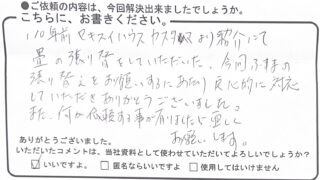 ●ご依頼の内容は、今回解決出来ましたでしょうか。
こちらに、お書きください。
10年前 セキスイハウス カスタ より紹介にて
畳の張り替をしていただいた。今回ふすまの
張り替えをお願いするにあたり 良心的に対応
していただきありがとうございました。
また、何か依頼する事が有りましたら宜しく
お願いします。
ありがとうございました。
いただいたコメントは、当社資料として使わせていただいてよろしいでしょうか?
☑いいですよ。 □匿名ならいいですよ □使用してはいけません